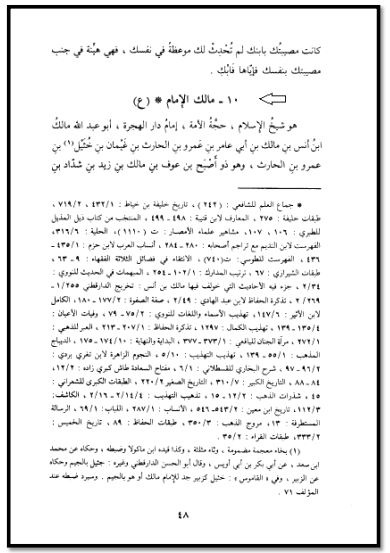 كانت مصيبتُك بابنك لم تُحْدِثْ لك موعظةً في نفسك ، فهي هيِّنة في جنب
مصيبتك بنفسك فإيَّاها فَابْكِ .
١٠ - مالك الإمام * (ع)
هو شيخُ الإسلام ، حجَّةُ الأمة ، إمامُ دار الهجرة ، أبو عبد الله مالكُ
ابنُ أنس بن مالك بن أبي عامر بن عَمرو بن الحارث بنِ غَيْمان بن خُثَيْل(١) بنِ
عمرو بن الحارث ، وهو ذو أَصْبَح بن عوف بن مالك بنِ زيد بنِ شدَّاد بنِ
* جماع العلم للشافعي : (٢٤٢) ، تاريخ خليفة بن خياط : ٤٣٢/١ ، ٧١٩/٢ ،
طبقات خليفة : ٢٧٥ ، المعارف لابن قتيبة : ٤٩٨ - ٤٩٩ ، المنتخب من كتاب ذيل المذيل
للطبري : ١٠٦ ، ١٠٧ ، مشاهير علماء الأمصار : ت (١١١٠) ، الحلية : ٣١٦/٦ ،
الفهرست لابن النديم مع تراجم أصحابه : ٢٨٠ - ٢٨٤ ، أنساب العرب لابن حزم : ٤٣٥/١ -
٤٣٦ ، الفهرست للطوسي : ت (٧٤٠) ، الانتقاء في فضائل الثلاثة الفقهاء : ٩ - ٦٣ ،
طبقات الشيرازي : ٦٧ ، ترتيب المدارك : ١٠٢/١ - ٢٥٤ ، المبهمات في الحديث للنووي :
٣٤/٢ ، جزء فيه الأحاديث التي خولف فيها مالك بن أنس : تخريج الدارقطني ٢٥٥/١ -
٢٦٩/٢ ، تذكرة الحفاظ لابن عبد الهادي : ٤٩/٢ ، صفة الصفوة : ١٧٧/٢ - ١٨٠ ، الكامل
لابن الأثير : ١٤٧/٦ ، تهذيب الأسماء واللغات للنووي : ٧٥/٢ - ٧٩ ، وفيات الأعيان :
١٣٥/٤ - ١٣٩ ، تهذيب الكمال : ١٢٩٧ ، تذكرة الحفاظ : ٢٠٧/١ - ٢١٣ ، العبر للذهبي :
٢٧٢/١ ، مرآة الجنان لليافعي : ٣٧٣/١ - ٣٧٧ ، البداية والنهاية : ١٧٤/١٠ - ١٧٥ ، الديباج
المذهب : ٥٥/١ - ١٣٩ ، تهذيب التهذيب : ٥/١٠ ، النجوم الزاهرة لابن تغري بردي :
٩٦/٢ - ٩٧ ، شرح البخاري للقسطلاني : ٦/١ ، مفتاح السعادة طاش كبري زاده : ١٢/٢ ،
٨٤ - ٨٨ ، التاريخ الكبير : ٣١٠/٧ ، التاريخ الصغير ٢٢٠/٢ ، الطبقات الكبرى للشعراني :
٤٥ ، شذرات الذهب : ١٢/٢ - ١٥ ، تذهيب التهذيب : ١٤/٤/٢ - ٢١٦ ، الكاشف :
١١٢/٣ ، تاريخ ابن معين : ٥٤٣/٢ - ٥٤٦ ، الأنساب : ٢٨٧/١ ، اللباب : ٦٩/١ ، الرسالة
المستطرفة : ١٣ ، مروج الذهب : ٣٥٠/٣ ، طبقات الحفاظ : ٨٩ ، تاريخ الخميس :
٣٣٣/٢ ، طبقات القراء : ٣٥/٢ .
(١) بخاء معجمة مضمومة ، وثاء مثلثة ، وكذا قيده ابن ماكولا وضبطه ، وحكاه عن محمد
ابن سعد ، عن أبي بكر بن أبي أويس ، وقال أبو الحسن الدارقطني وغيره : جثيل بالجيم وحكاه
عن الزبير ، وفي « القاموس » : خثيل كزبير جد للإمام مالك أو هو بالجيم . وسيرد ضبطه عند
المؤلف ٧١ .
٤٨